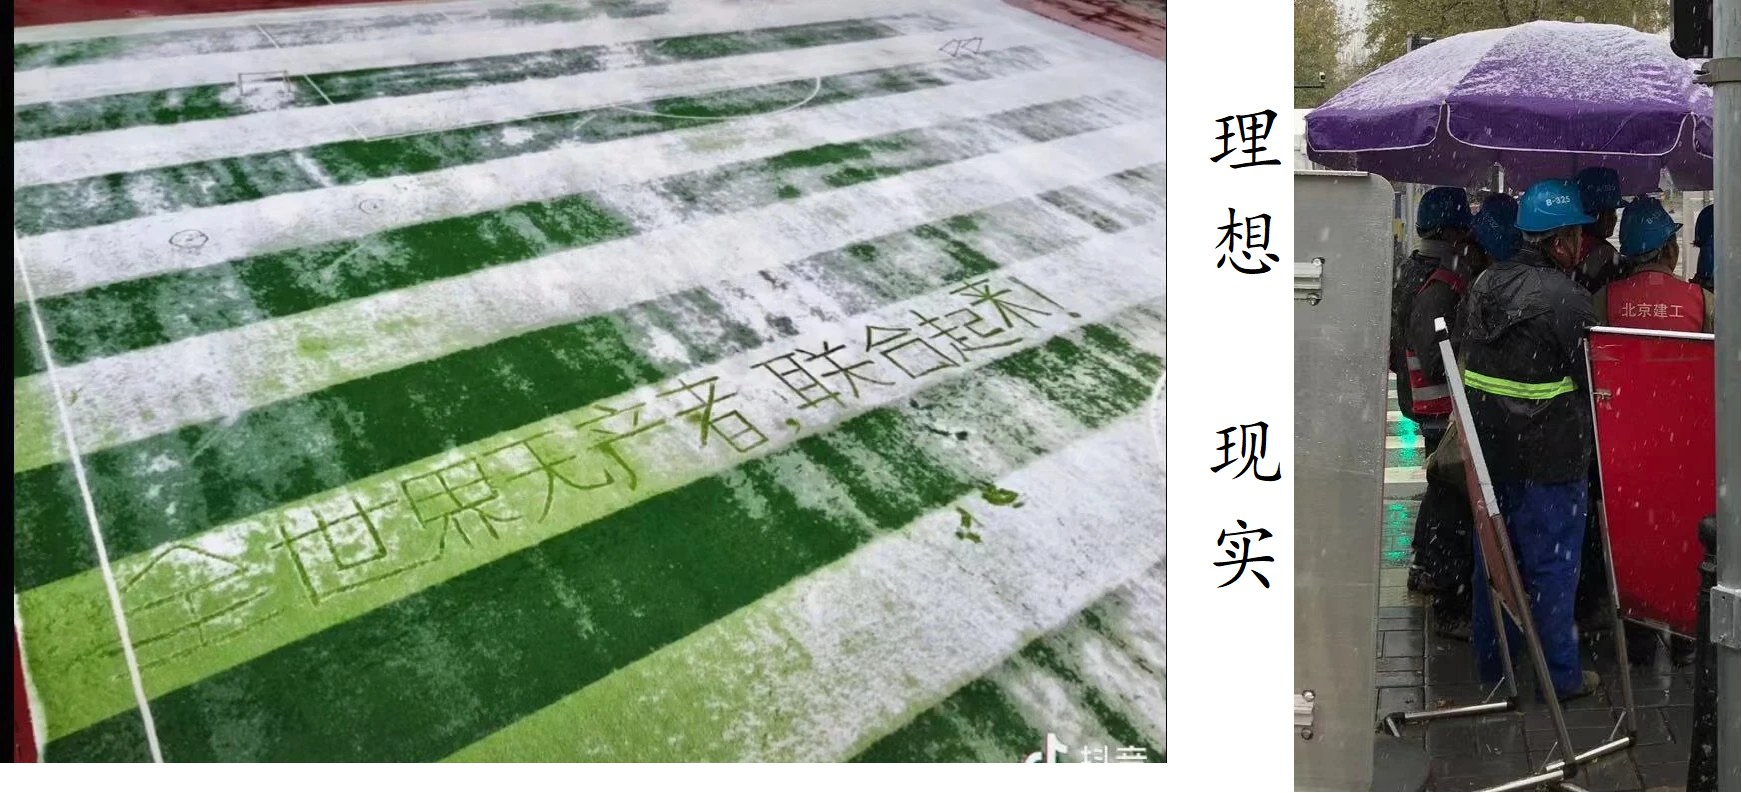 全世界无产者,联合起来!
抖音
理想
现实
B-325
北京建工